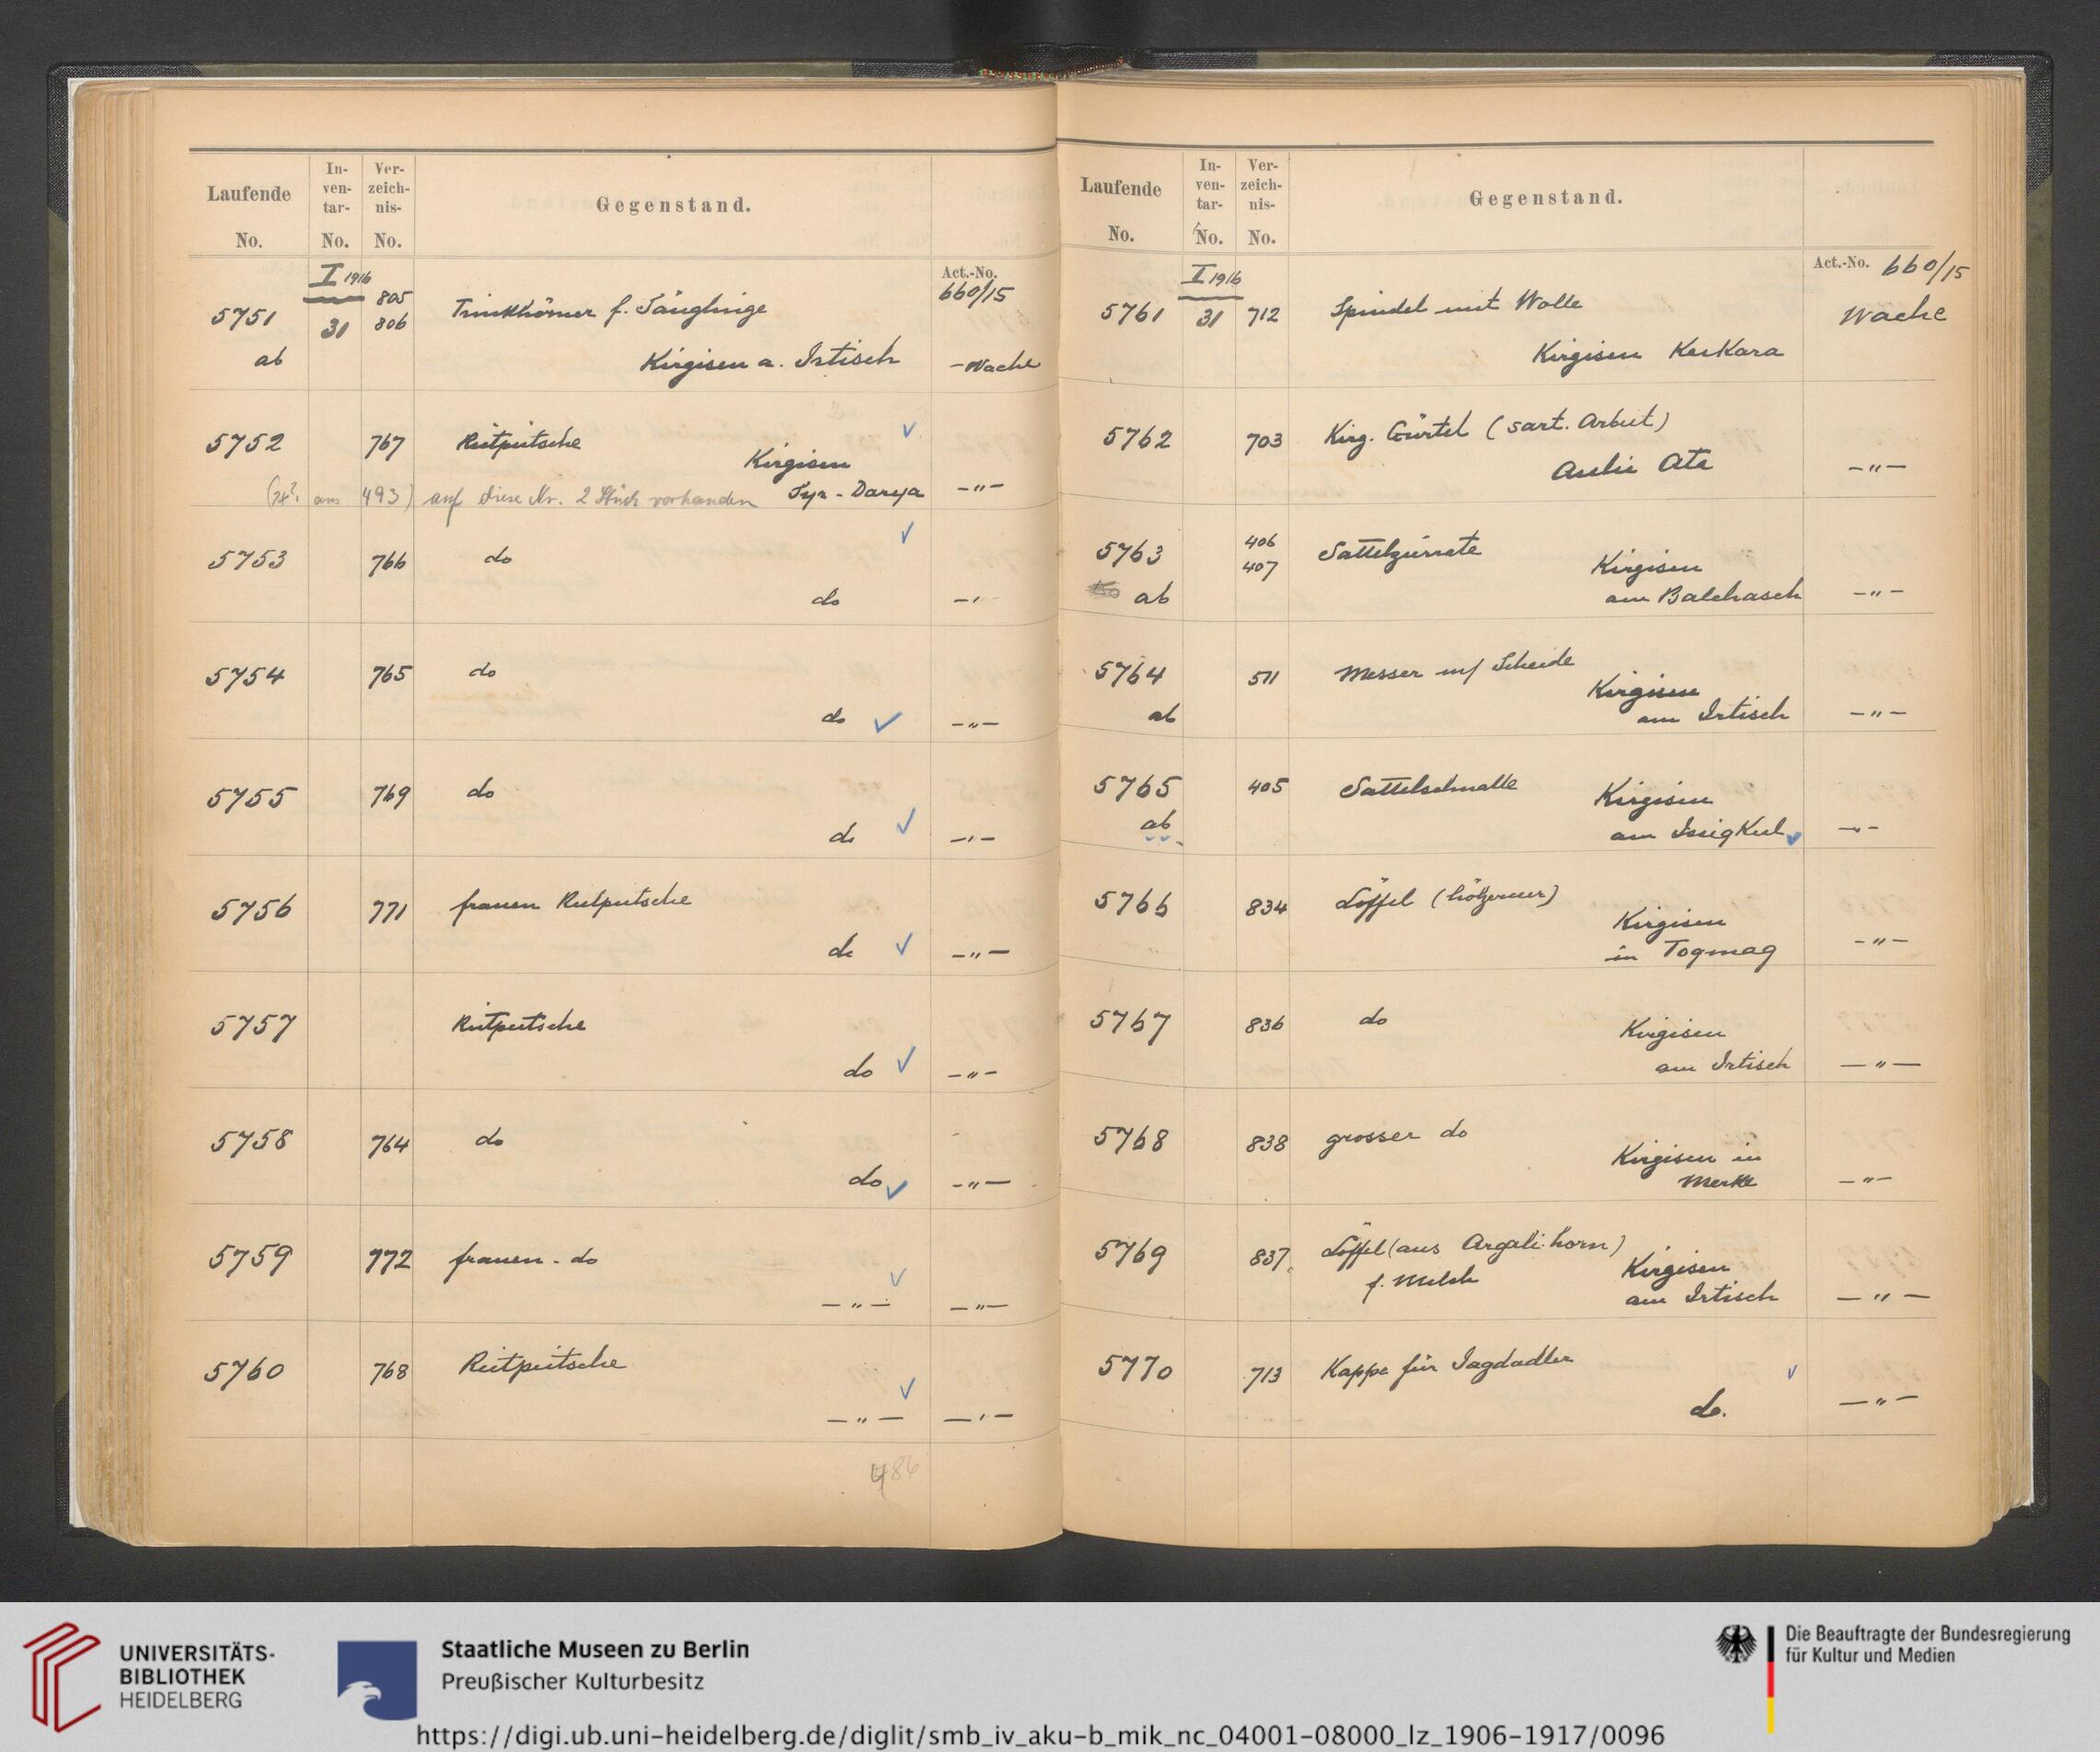 Laufende No.
In-ven-tar- No.
Ver-zeich-nis- No.
Gegenstand.
I 1916
Act.-No.
660/15
5751 31 805
806 Trinkhörner f. Säuglinge
ab Kirgisen a. Irtisch - Wache
5752 767 Reitpeitsche
Kirgisen
( aus 493) auf diese Nr. 2 Stück vorhanden Syr-Darya -"-
5753 766 do
do -'-
5754 765 do
do -"-
5755 769 do
do -'-
5756 771 frauen Reitpeitsche
do -"-
5757 Reitpeitsche
do -"-
5758 764 do
do -"-
5759 772 frauen - do
-"- -"-
5760 768 Reitpeitsche
-"- -'-
486
Laufende No.
In-ven-tar- No.
Ver-zeich-nis- No.
Gegenstand.
I 1916
Act.-No. 660/15
5761 31 712 Spindel mit Wolle Wache
Kirgisen KerKara
5762 703 Kirg. Gürtel (sart. Arbeit)
Aulie Ata -"-
5763 406
407 Sattelgurte Kirgisen
ab am Balchasch -"-
5764 511 Messer m/ Scheide
Kirgisen
ab am Irtisch -"-
5765 405 Sattelschnalle Kirgisen
ab am IssigKul -"-
5766 834 Löffel (hölzerner)
Kirgisen
in Togmag -"-
5767 836 do Kirgisen
am Irtisch -"-
5768 838 grosser do
Kirgisen in
Merke -"-
5769 837 Löffel (aus Argali-horn)
f. Milch Kirgisen
am Irtisch -"-
5770 713 Kappe für Jagdadler
do. -"-
UNIVERSITÄTS-
BIBLIOTHEK
HEIDELBERG
Staatliche Museen zu Berlin
Preußischer Kulturbesitz
Die Beauftragte der Bundesregierung
für Kultur und Medien
https://digi.ub.uni-heidelberg.de/diglit/smb_iv_aku-b_mik_nc_04001-08000_lz_1906-1917/0096